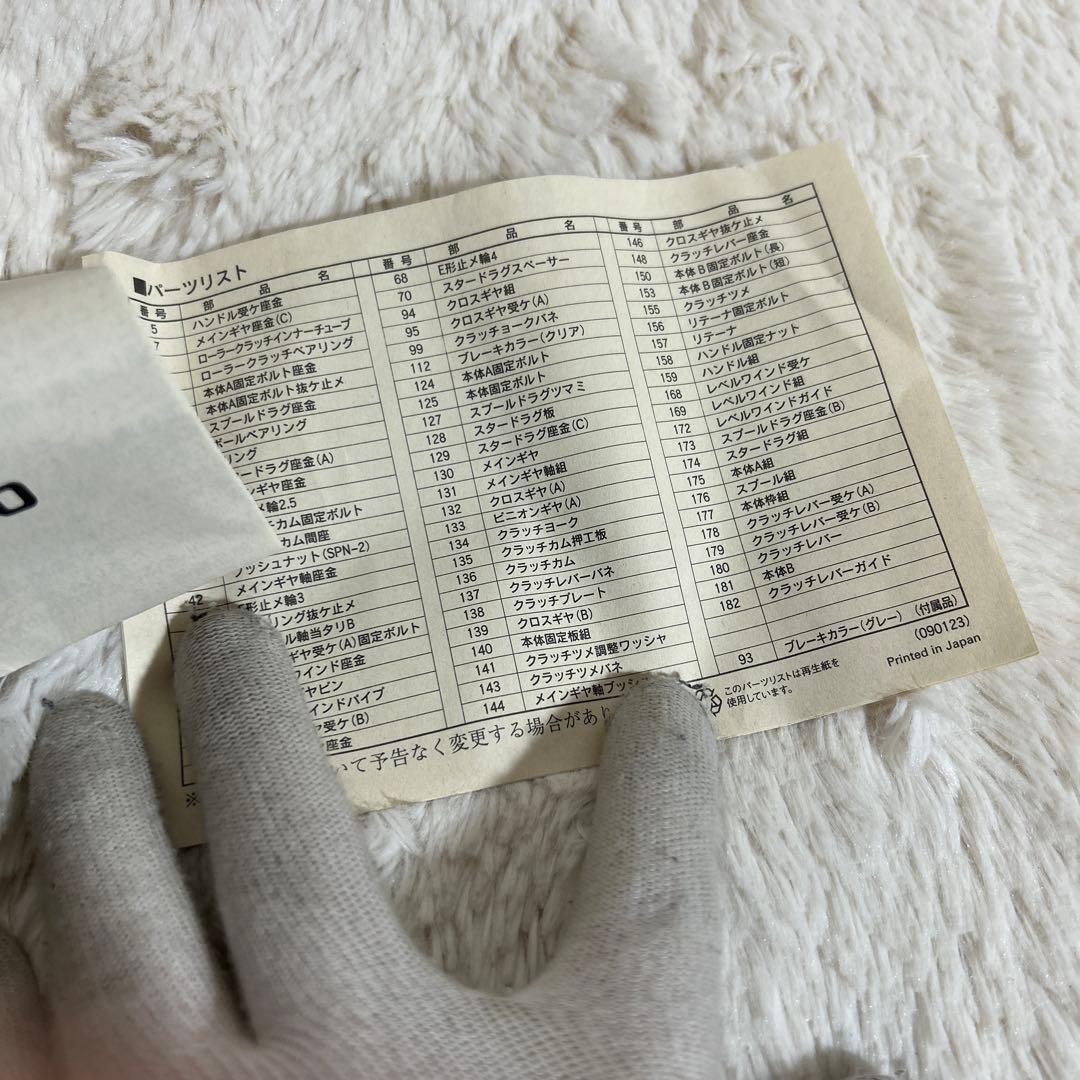 ■パーツリスト
番号 部品名
5 ハンドル受ケ座金
7 メインギヤ座金(C)
ローラークラッチインナーチューブ
ローラークラッチベアリング
本体A固定ボルト座金
本体A固定ボルト抜ケ止メ
スプールドラグ座金
ボールベアリング
リング
ードラグ座金(A)
ンギヤ座金
メ輪2.5
チカム固定ボルト
カム間座
プッシュナット(SPN-2)
メインギヤ軸座金
42 E形止メ輪3
リング抜ケ止メ
ル軸当タリB
ギヤ受ケ(A)固定ボルト
ワインド座金
ヤピン
インドパイプ
受ケ(B)
座金
番号 部品名
68 E形止メ輪4
70 スタードラグスペーサー
94 クロスギヤ組
95 クロスギヤ受ケ(A)
99 クラッチヨークバネ
112 ブレーキカラー(クリア)
124 本体A固定ボルト
125 本体固定ボルト
127 スプールドラグツマミ
128 スタードラグ板
129 スタードラグ座金(C)
130 メインギヤ
131 メインギヤ軸組
132 クロスギヤ(A)
133 ピニオンギヤ(A)
134 クラッチヨーク
135 クラッチカム押工板
136 クラッチカム
137 クラッチレバーバネ
138 クラッチプレート
139 クロスギヤ(B)
140 本体固定板組
141 クラッチツメ調整ワッシャ
143 クラッチツメバネ
144 メインギヤ軸ブッシ
番号 部品名
146 クロスギヤ抜ケ止メ
148 クラッチレバー座金
150 本体B固定ボルト(長)
153 本体B固定ボルト(短)
155 クラッチツメ
156 リテーナ固定ボルト
157 リテーナ
158 ハンドル固定ナット
159 ハンドル組
168 レベルワインド受ケ
169 レベルワインド組
172 レベルワインドガイド
173 スプールドラグ座金(B)
174 スタードラグ組
175 本体A組
176 スプール組
177 本体枠組
178 クラッチレバー受ケ(A)
179 クラッチレバー受ケ(B)
180 クラッチレバー
181 本体B
182 クラッチレバーガイド
93 ブレーキカラー(グレー) (付属品)
(090123)
Printed in Japan
このパーツリストは再生紙を
使用しています。
※ いて予告なく変更する場合があり